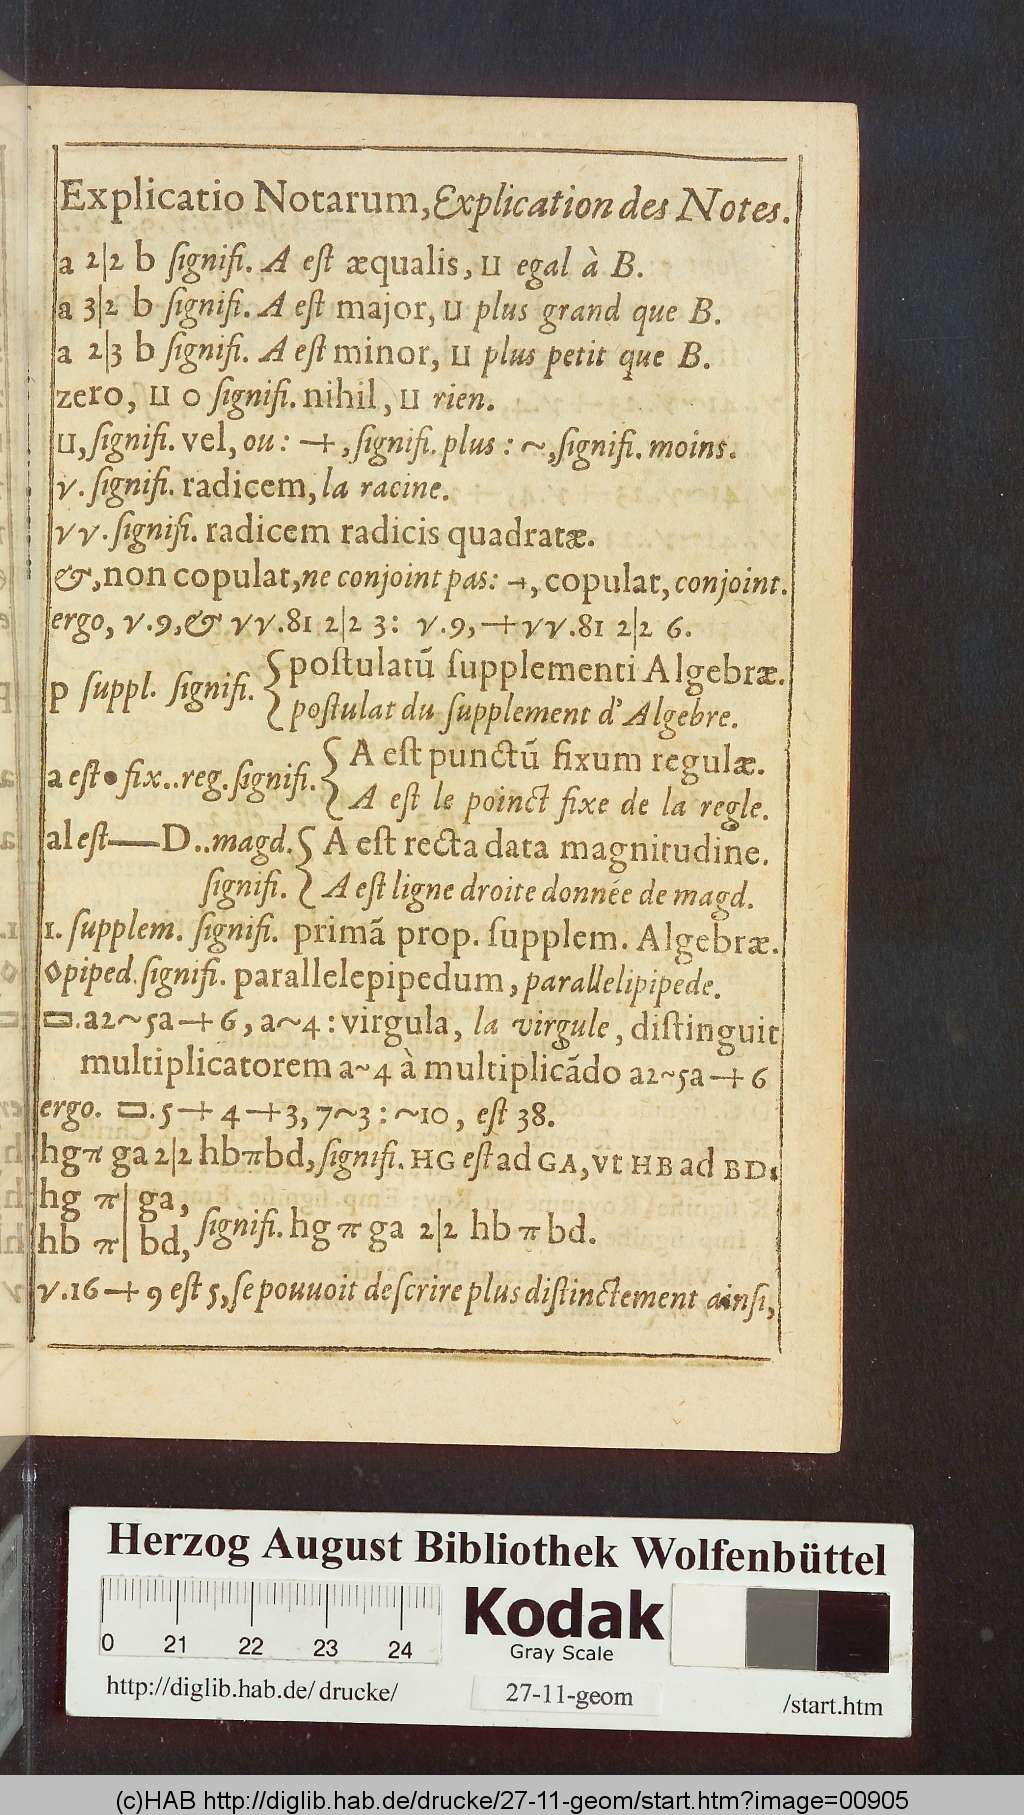 Explicatio Notarum, Explication des Notes.
a 2|2 b ſignifi. A eſt æqualis, ⊔ egal à B.
a 3|2 b ſignifi. A eſt major, ⊔ plus grand que B.
a 2|3 b ſignifi. A eſt minor, ⊔ plus petit que B.
zero, ⊔ 0 ſignifi. nihil, ⊔ rien.
⊔, ſignifi. vel, ou: +, ſignifi. plus: ~, ſignifi. moins.
√. ſignifi. radicem, la racine.
√√. ſignifi. radicem radicis quadratæ.
&, non copulat, ne conjoint pas: +, copulat, conjoint.
ergo, √.9, & √√.81 2|2 3: √.9, + √√.81 2|2 6.
p ſuppl. ſignifi. { poſtulatū ſupplementi Algebræ.
poſtulat du ſupplement d'Algebre.
a eſt ● fix..reg. ſignifi. { A eſt punctū fixum regulæ.
A eſt le poinct fixe de la regle.
al eſt — D..magd. { A eſt recta data magnitudine.
ſignifi. A eſt ligne droite donnée de magd.
1. ſupplem. ſignifi. primā prop. ſupplem. Algebræ.
◊piped. ſignifi. parallelepipedum, parallelipipede.
▭.a2~5a+6, a~4: virgula, la virgule, diſtinguit
multiplicatorem a~4 à multiplicādo a2~5a+6
ergo. ▭.5+4+3, 7~3: ~10, eſt 38.
hg π ga 2|2 hb π bd, ſignifi. HG eſt ad GA, vt HB ad BD.
hg π| ga,
hb π| bd, ſignifi. hg π ga 2|2 hb π bd.
√.16+9 eſt 5, ſe pouuoit deſcrire plus diſtinctement ainſi,
Herzog August Bibliothek Wolfenbüttel
0 21 22 23 24
Kodak
Gray Scale
http://diglib.hab.de/drucke/
27-11-geom
/start.htm
(c)HAB http://diglib.hab.de/drucke/27-11-geom/start.htm?image=00905